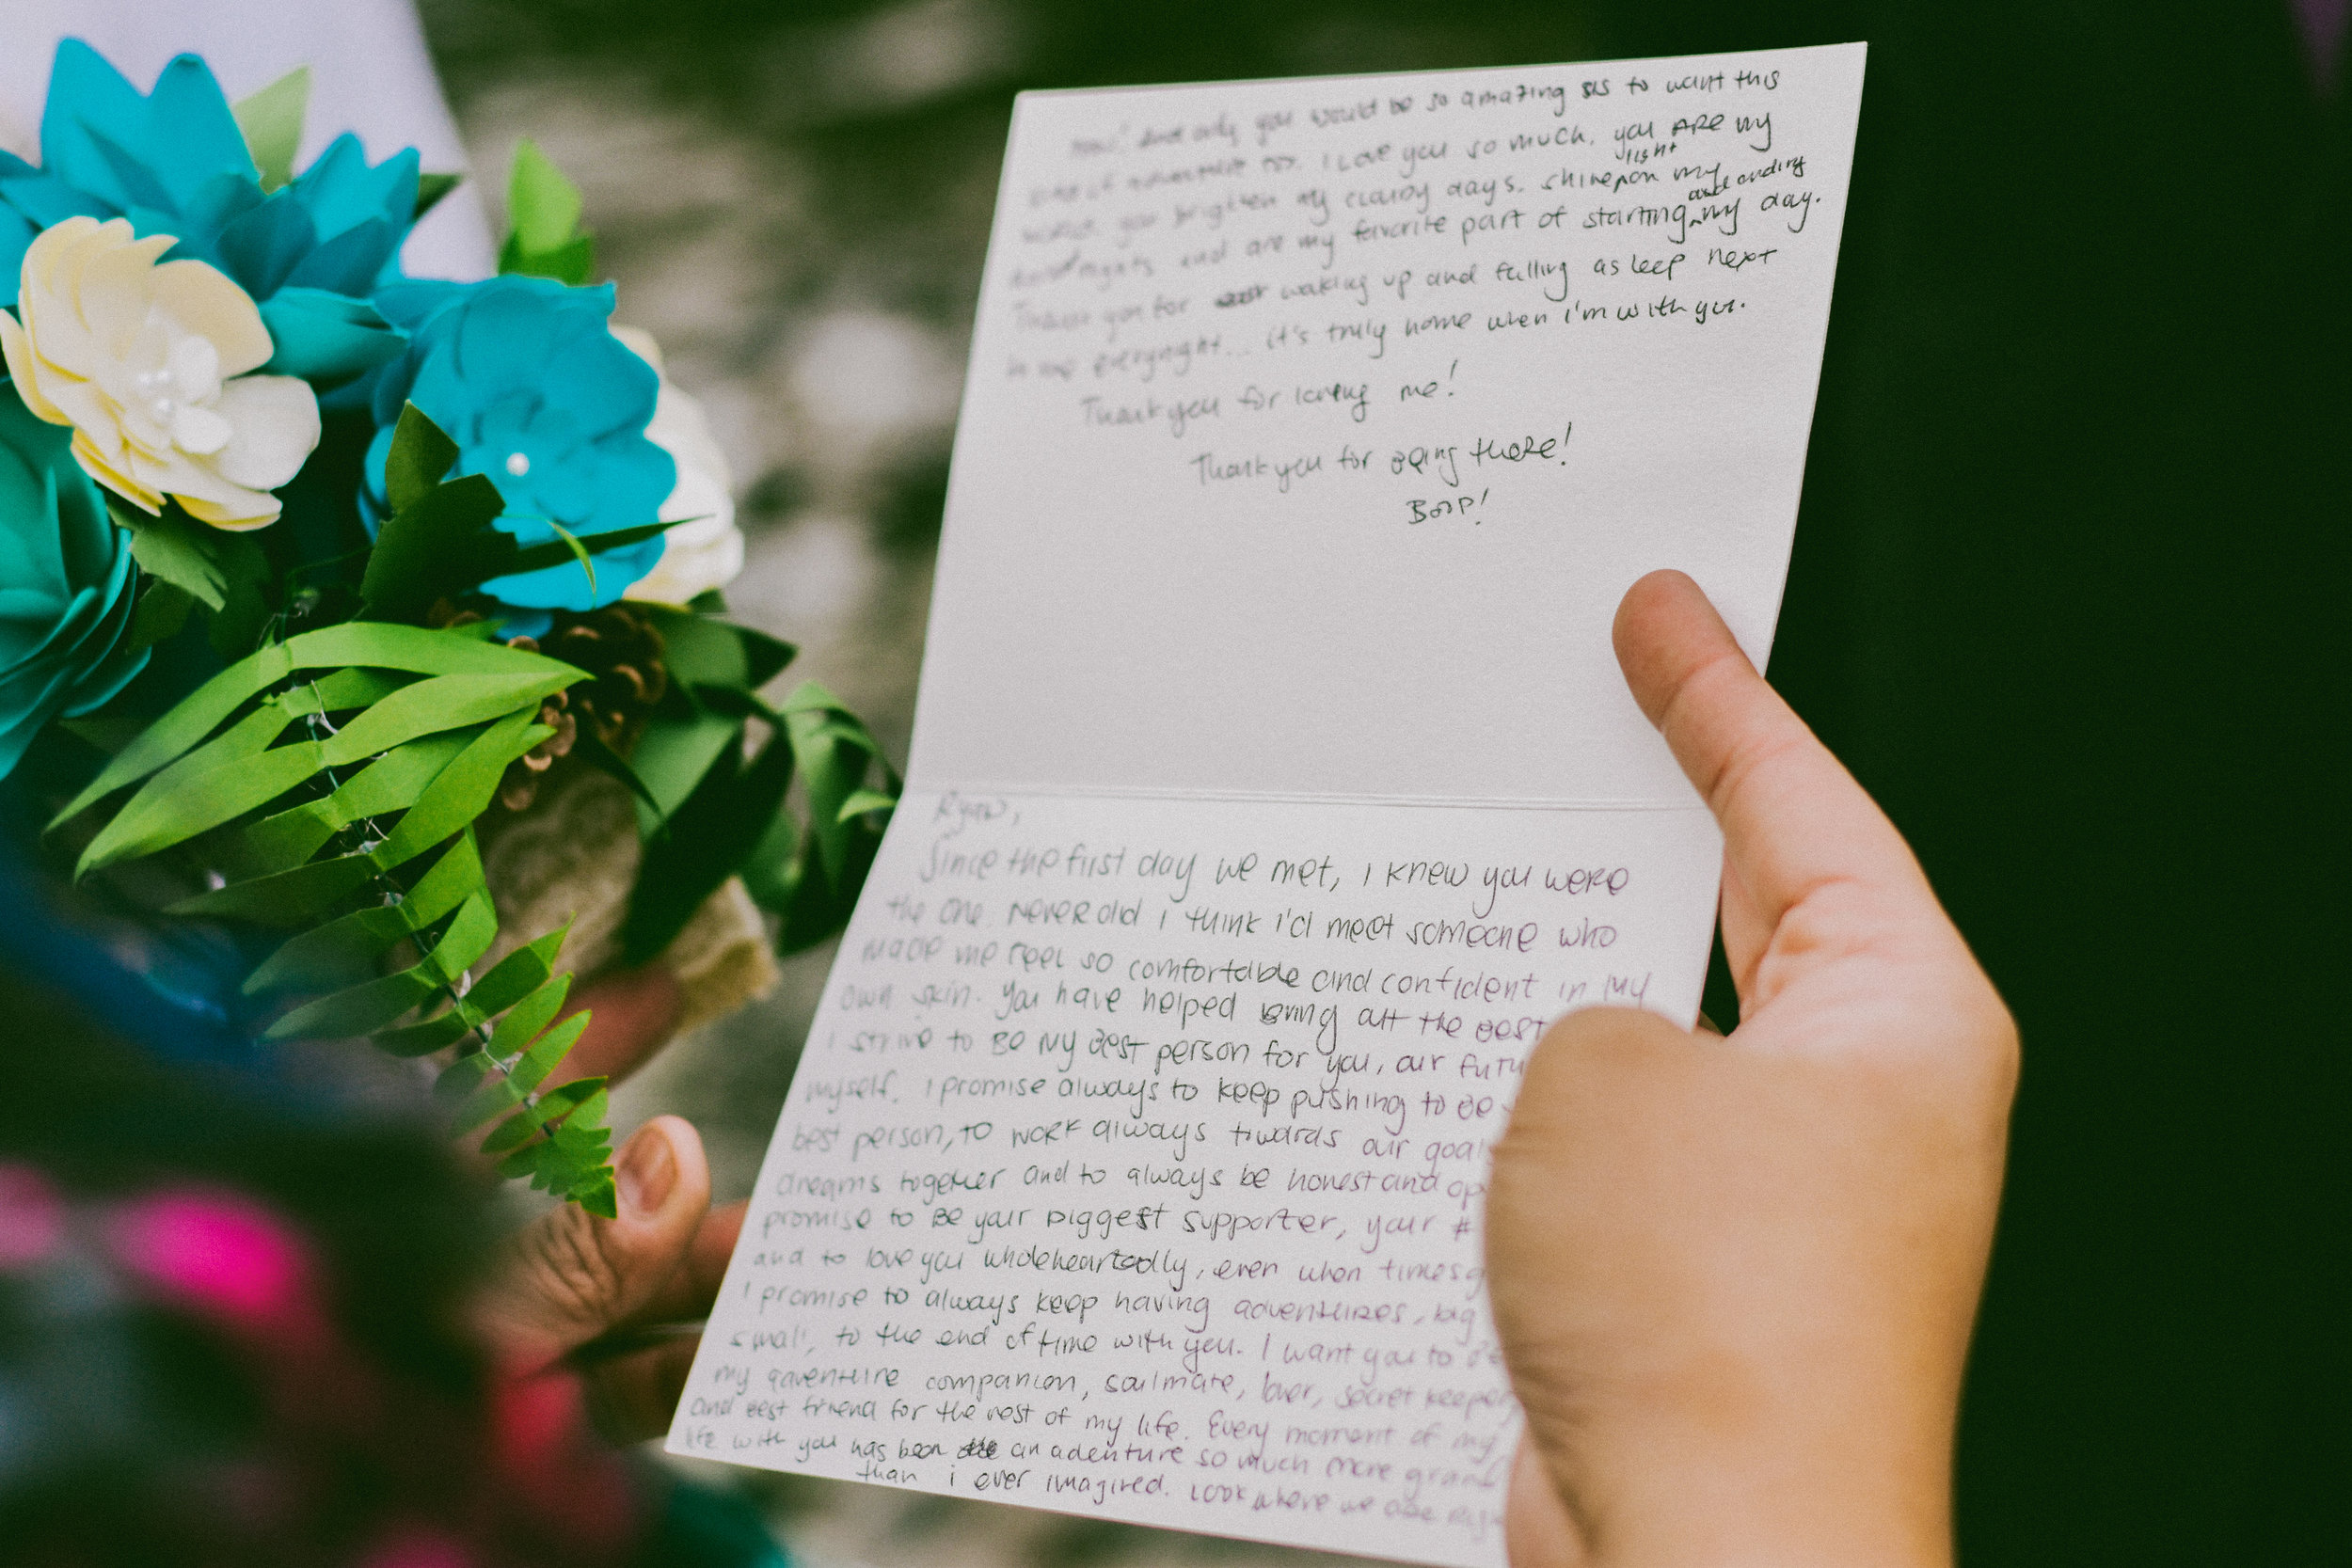 Ryan,
Since the first day we met, I knew you were
the one. Never did I think I'd meet someone who
made me feel so comfortable and confident in my
own skin. You have helped bring all the best
I strive to be my best person for you, our
myself. I promise always to keep pushing to be
best person, to work always towards our
dreams together and to always be honest and
promise to be your biggest supporter, your #
and to love you wholeheartedly, even when times
I promise to always keep having adventures, big
small, to the end of time with you. I want you to be
my adventure companion, soulmate, lover, secret keeper,
and best friend for the rest of my life. Every moment of my
life with you has been an adenture so much more grand
than i ever imagined. Look where we are
now! And only you would be so amazing to want this
I love you so much. you ARE my
world. you brighten my cloudy days. shine light on my
nights and are my favorite part of starting and ending my day.
Thank you for waking up and falling asleep next
to me everynight... it's truly home when i'm with you.
Thank you for loving me!
Thank you for being there!
Boop!